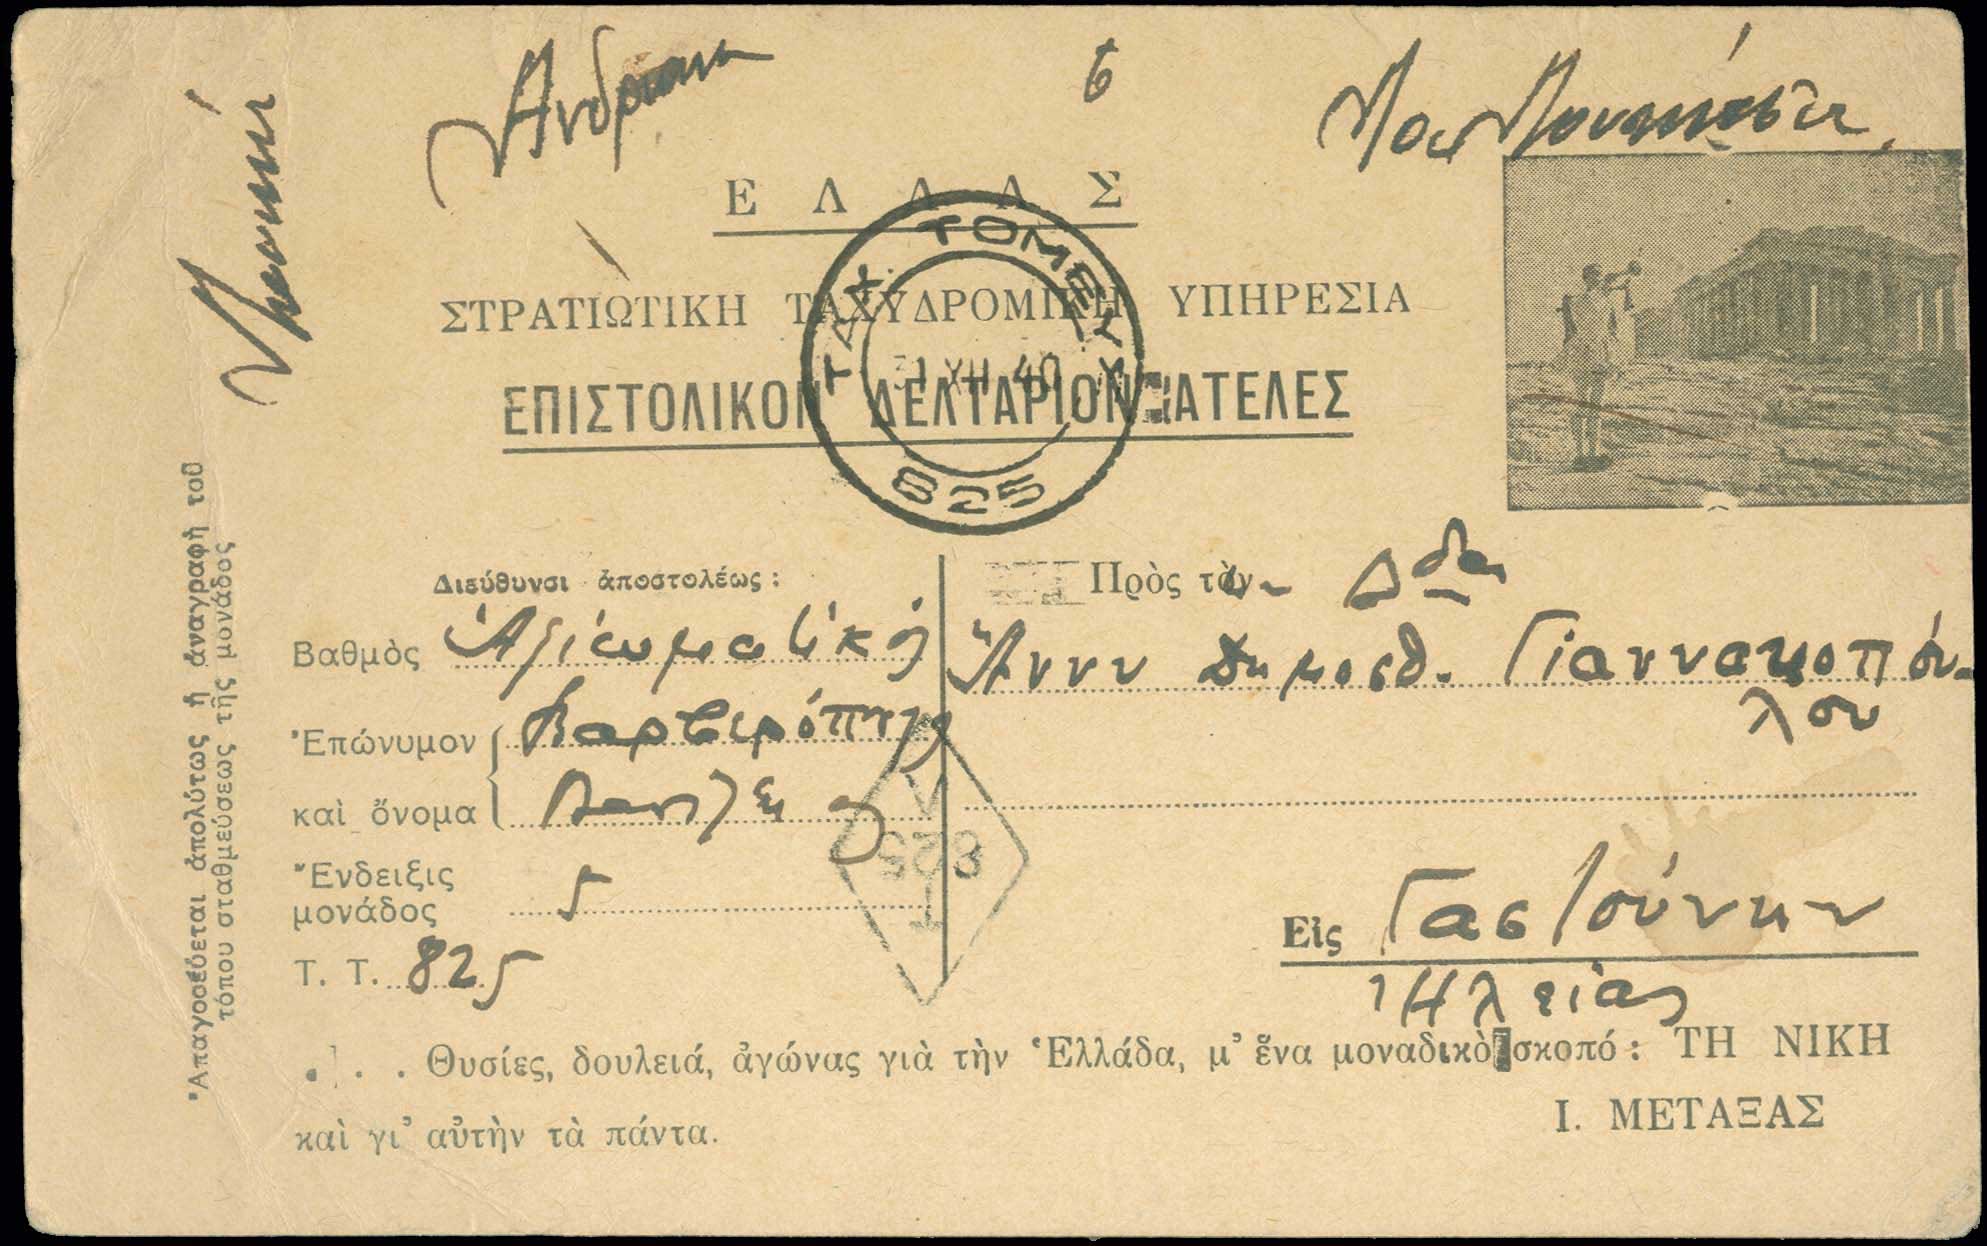 6
Ε Λ Λ Α Σ
ΣΤΡΑΤΙΩΤΙΚΗ ΤΑΧΥΔΡΟΜΙΚΗ ΥΠΗΡΕΣΙΑ
ΕΠΙΣΤΟΛΙΚΟΝ ΔΕΛΤΑΡΙΟΝ ΑΤΕΛΕΣ
ΤΑΧ. ΤΟΜΕΥΣ
31 XII 40
825
Ἀπαγορεύεται ἀπολύτως ἡ ἀναγραφὴ τοῦ
τόπου σταθμεύσεως τῆς μονάδος
Διεύθυνσι ἀποστολέως :
Βαθμὸς Ἀξιωματικός
Ἐπώνυμον
καὶ ὄνομα
Ἔνδειξις
μονάδος 5
Τ. Τ. 825
V
825
T
Πρὸς τὸν Δδα
Ἄνναν Δημοσθ. Γιαννακοπού-
λου
Εἰς Γαστούνην
Ἠλείας
. . . Θυσίες, δουλειά, ἀγώνας γιὰ τὴν Ἑλλάδα, μ᾽ ἕνα μοναδικὸ σκοπό : ΤΗ ΝΙΚΗ
καὶ γι᾽ αὐτὴν τὰ πάντα.
Ι. ΜΕΤΑΞΑΣ